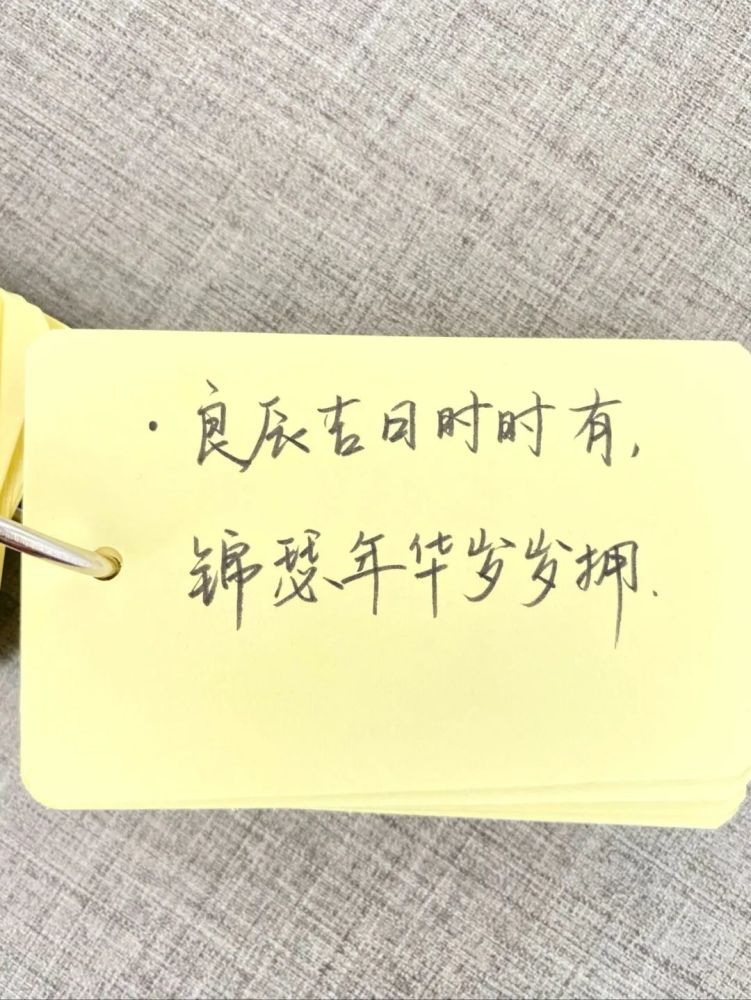 ·良辰吉日时时有,
锦瑟年华岁岁拥.